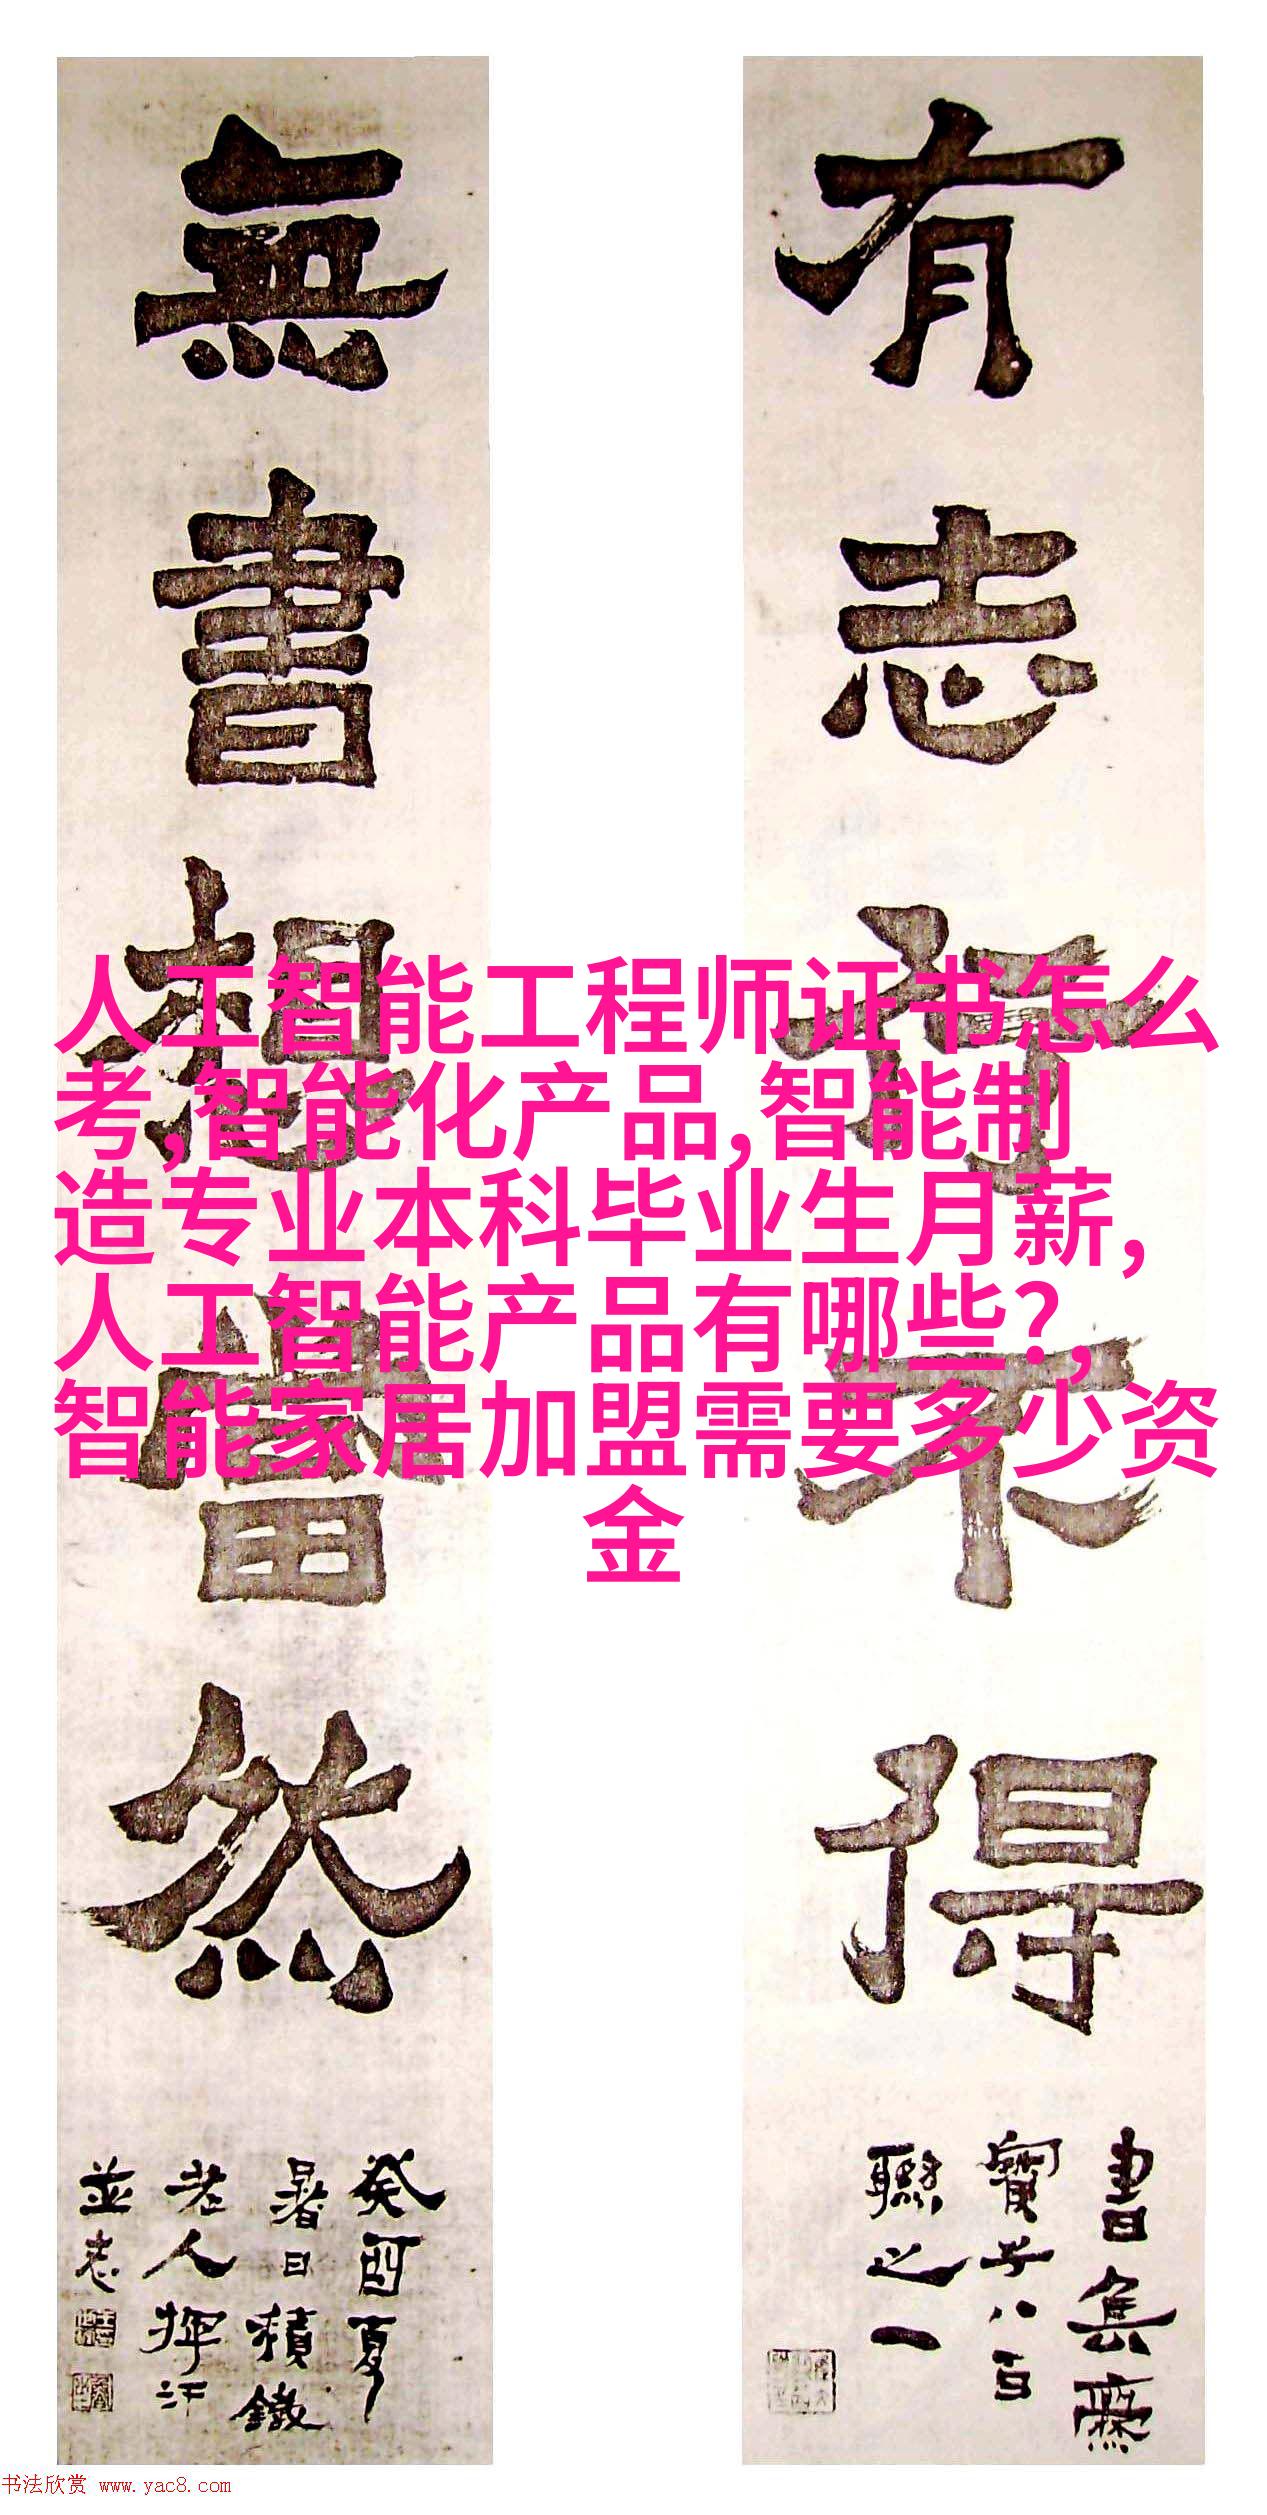 有志有不得
無書想當然
書集齋
寶子八百
聯之一
癸酉夏
暑日積鐵
老人揮汗
並志
人工智能工程师证书怎么
考,智能化产品,智能制
造专业本科毕业生月薪,
人工智能产品有哪些?,
智能家居加盟需要多少资
金
书法欣赏 www.yac8.com